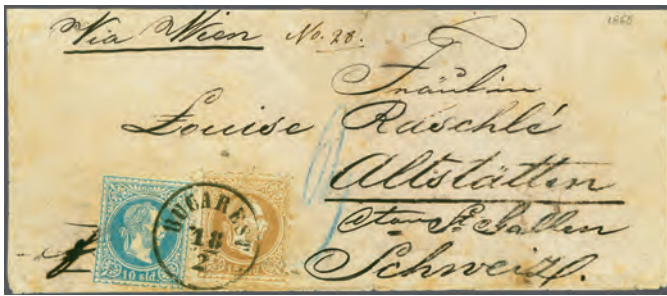 Via Wien No. 28.
1868
Fräulin
Louise Räschlé
Altstätten
Cton St. Gallen
Schweitz.
BUCAREST
18
2
10 sld